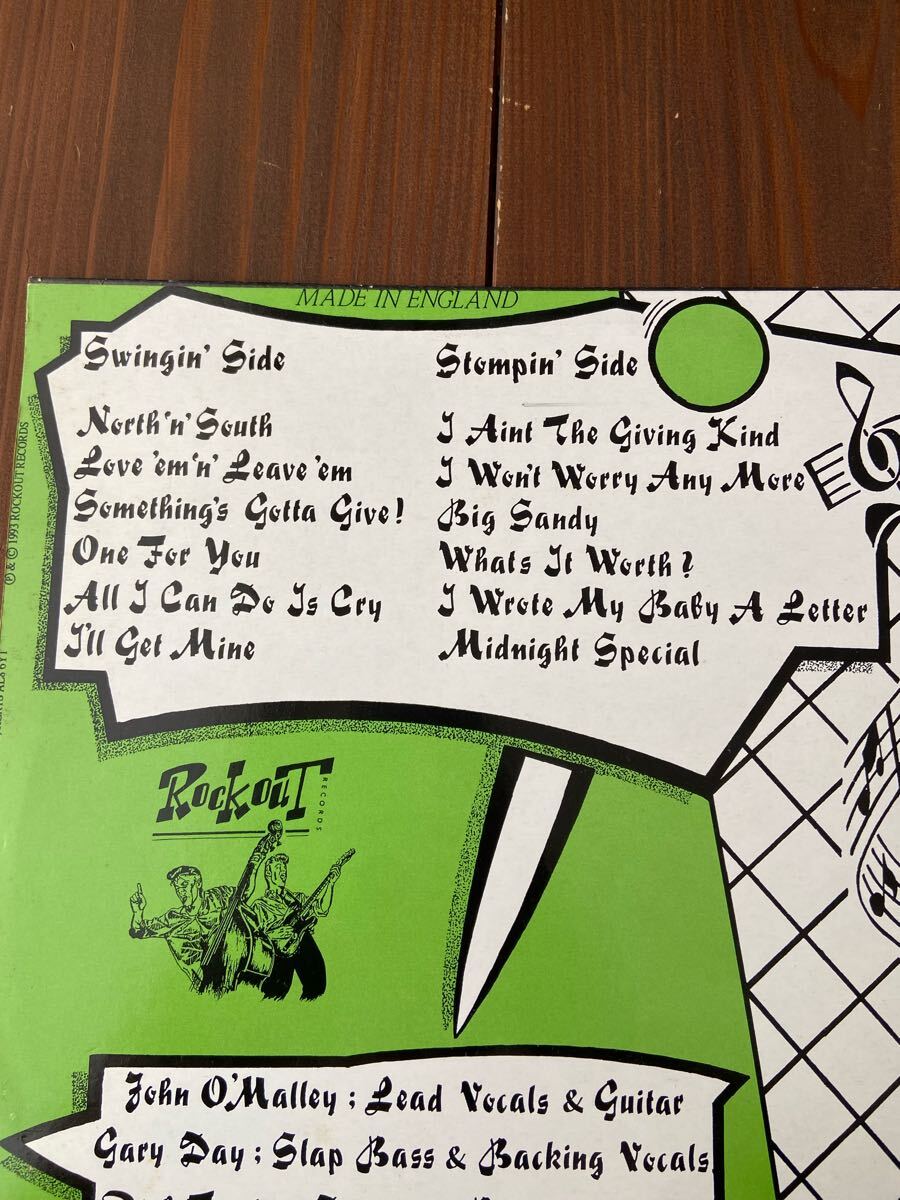 MADE IN ENGLAND
Swingin' Side
North 'n' South
Love 'em 'n' Leave 'em
Something's Gotta Give!
One For You
All I Can Do Is Cry
I'll Get Mine
Stompin' Side
I Aint The Giving Kind
I Won't Worry Any More
Big Sandy
Whats It Worth?
I Wrote My Baby A Letter
Midnight Special
℗ & © 1993 ROCKOUT RECORDS
RockouT
RECORDS
John O'Malley; Lead Vocals & Guitar
Gary Day; Slap Bass & Backing Vocals